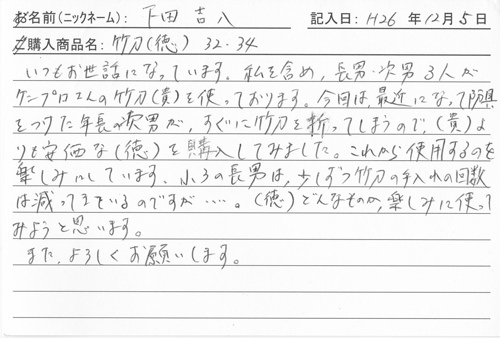 お名前(ニックネーム): 下田 吉八 記入日: H26 年 12月 5日
ご購入商品名: 竹刀(徳) 32・34
いつもお世話になっています。私を含め、長男・次男3人が
ケンプロさんの竹刀(貴)を使っております。今回は、最近になって防具
をつけた年長の次男が、すぐに竹刀を折ってしまうので、(貴)よ
りも安価な(徳)を購入してみました。これから使用するのを
楽しみにしています。小3の長男は、少しずつ竹刀の手入れの回数
は減ってきているのですが・・・・。(徳)どんなものか、楽しみに使って
みようと思います。
また、よろしくお願いします。